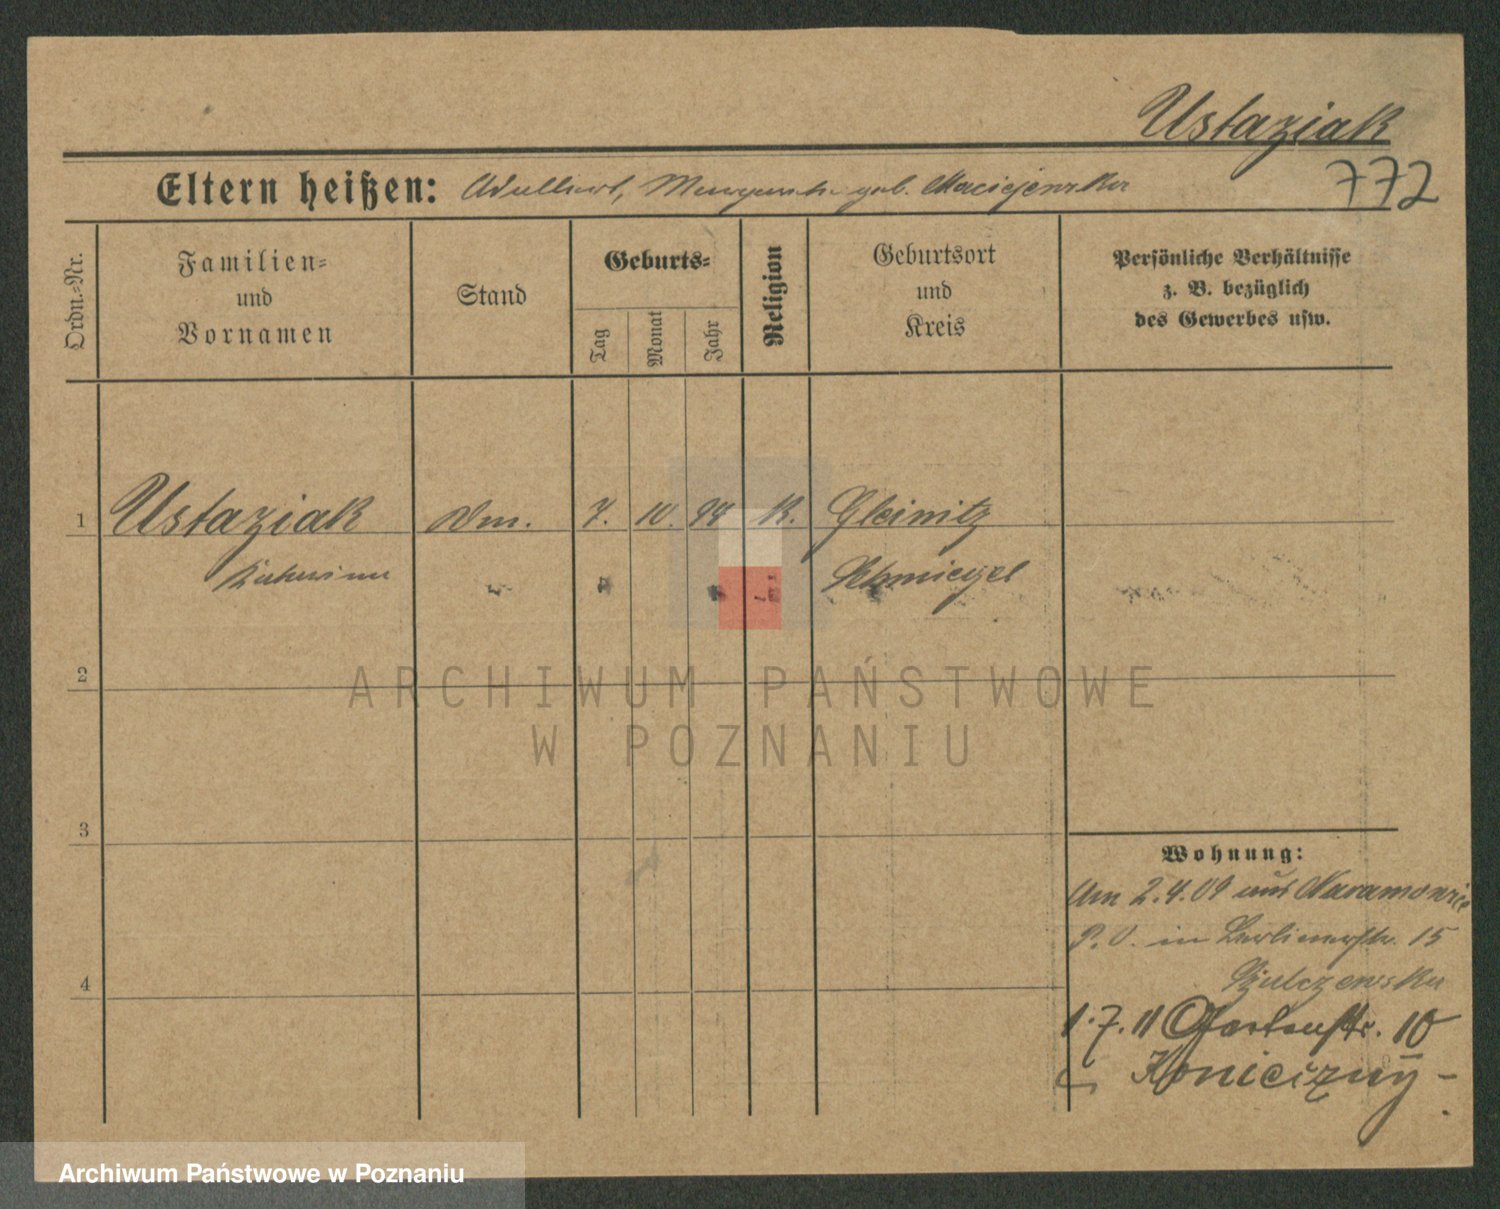 Ustaziak
772
Eltern heißen: Adalbert, geb. Maciejewska
Ordn.-Nr.
Familien-
und
Vornamen
Stand
Geburts-
Tag
Monat
Jahr
Religion
Geburtsort
und
Kreis
Persönliche Verhältnisse
z. B. bezüglich
des Gewerbes usw.
1 Ustaziak 7. 10. K. Gleinitz
Schmiegel
2
3
4
Wohnung:
Am 2.4.09 aus Naramowice
P. O. in Berlinerstr. 15
Szulczewska
1.7.11 Gartenstr. 10
Konieczny -
ARCHIWUM PAŃSTWOWE
W POZNANIU
Archiwum Państwowe w Poznaniu